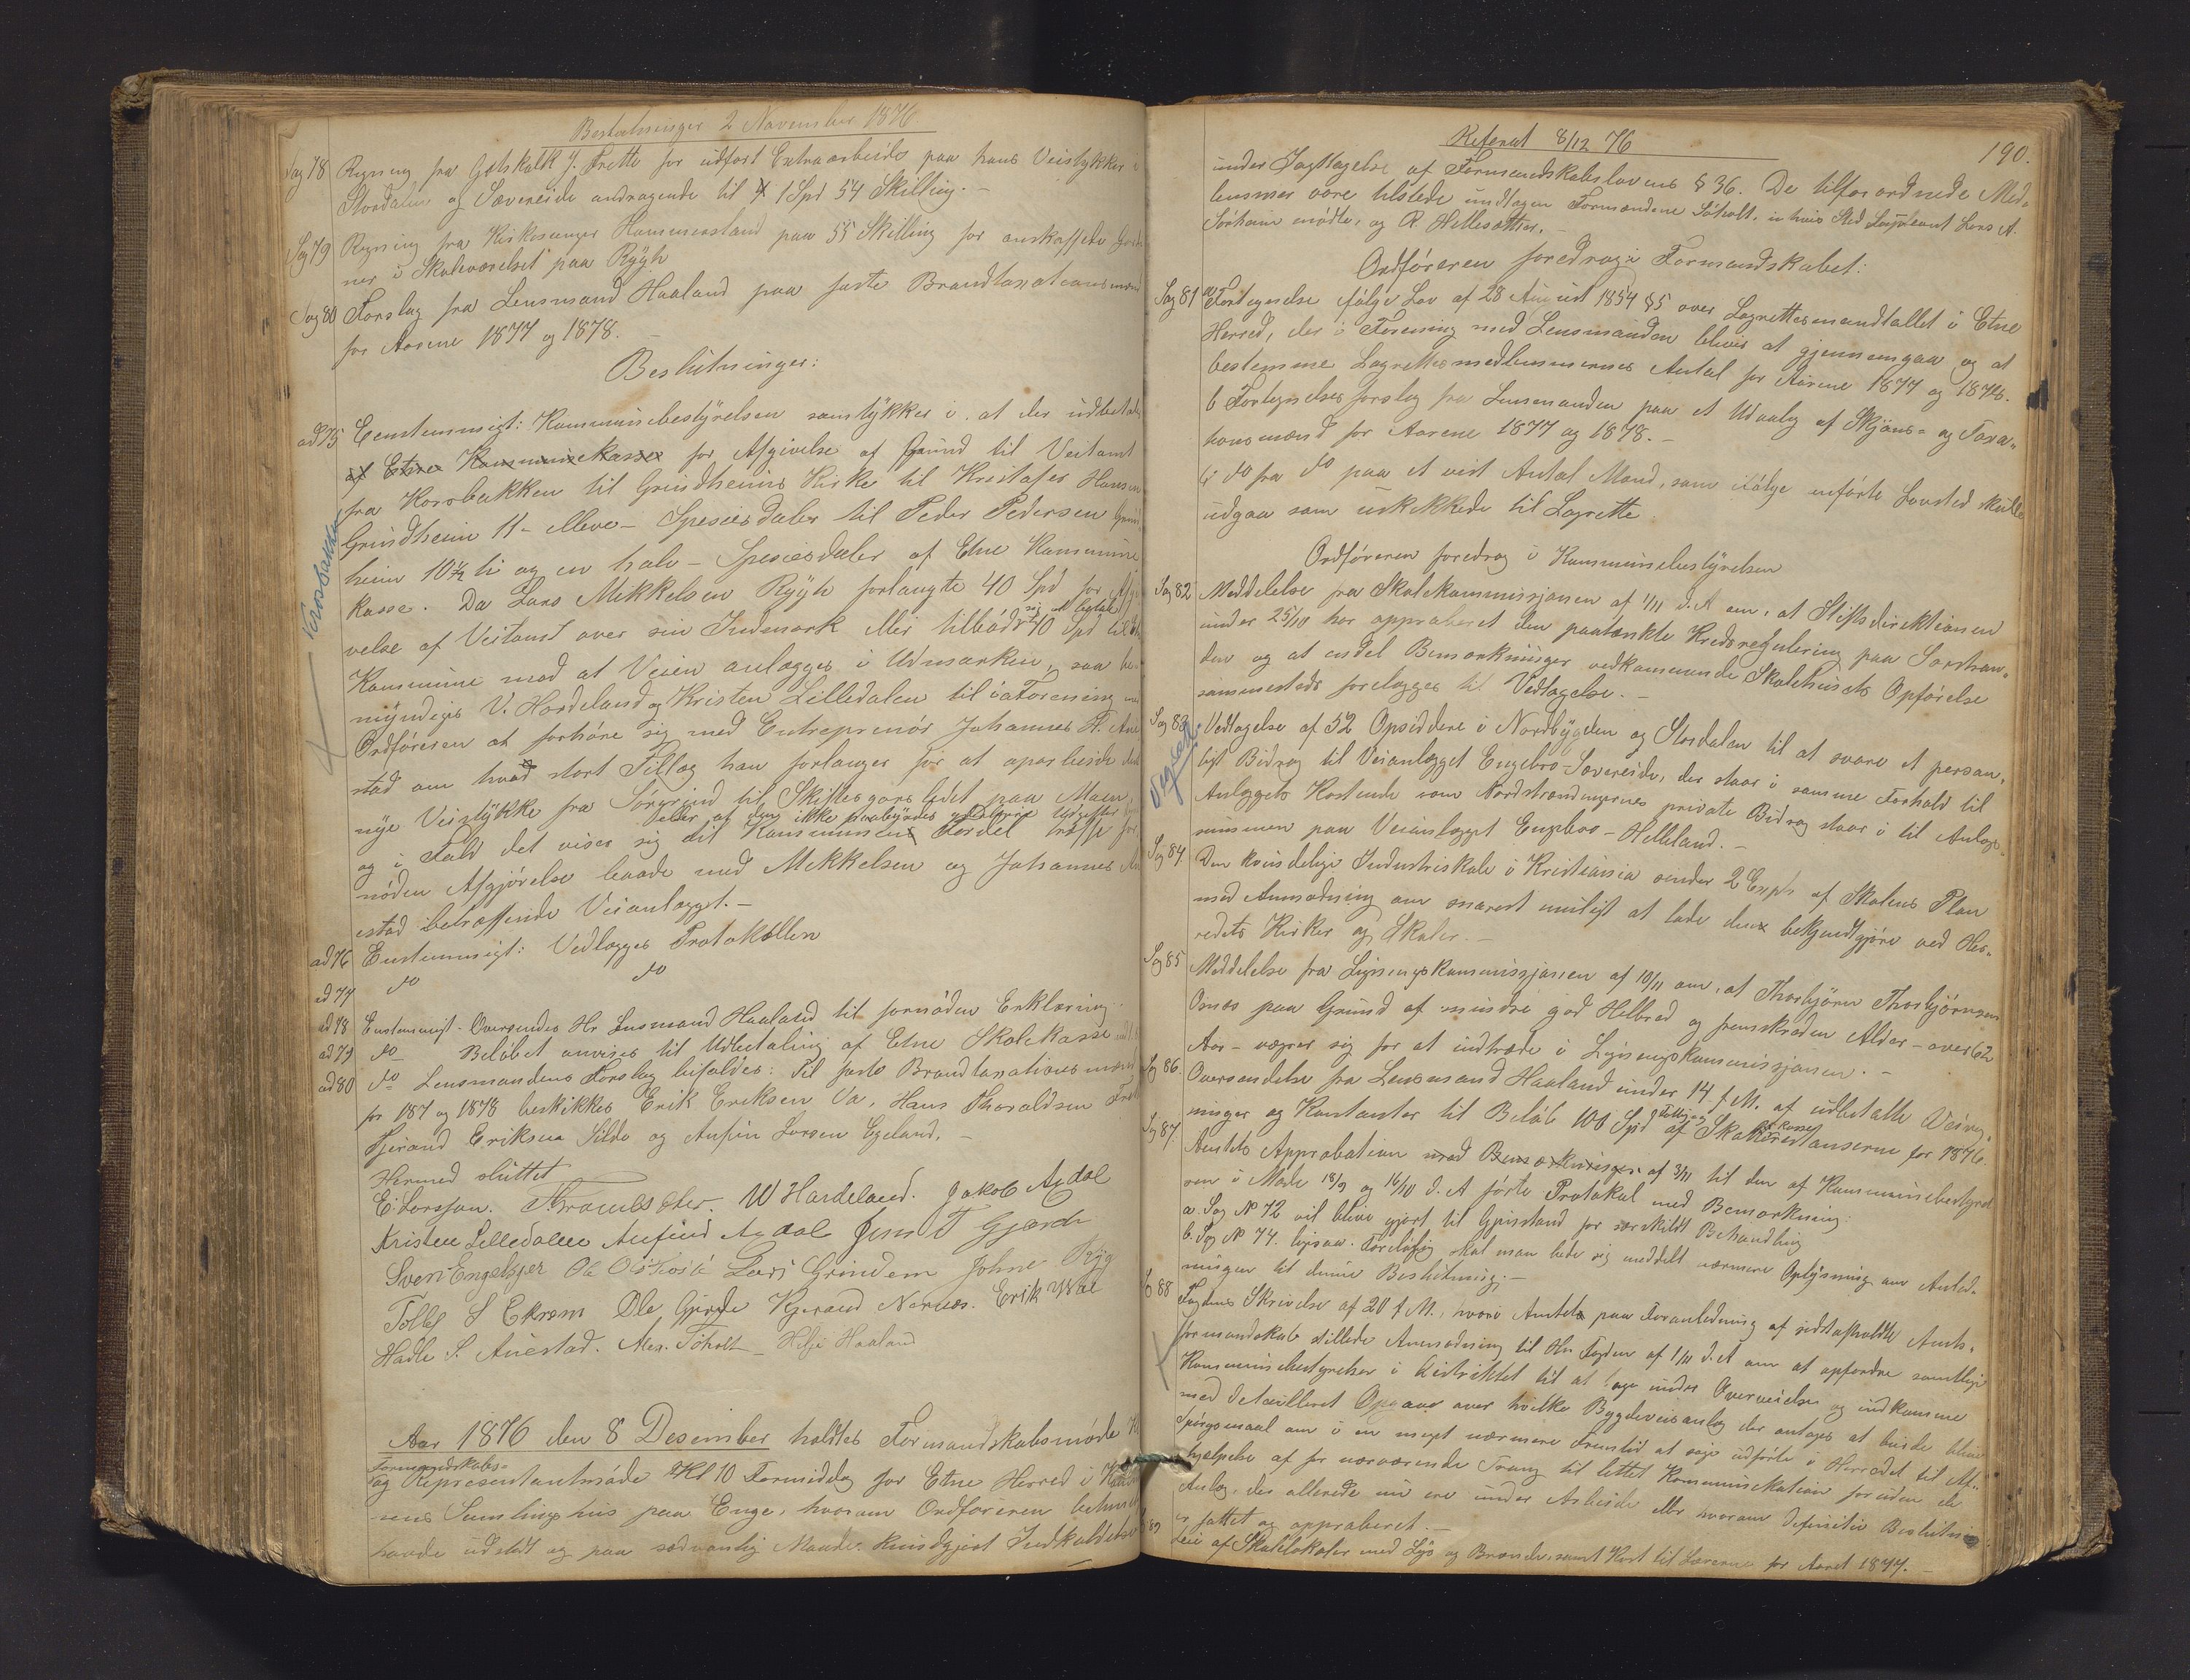 Beslutninger 2 November 1876
Sag 78 Regning fra Gotskalk J. Frette for udført Extraarbeide paa hans Veistykker i
Stordalen og Sævereide andragende til 1 Spd 54 Skilling. —
Sag 79 Regning fra Kirkesanger Hammersland paa 55 Skilling for anskaffede
ner i Skoleværelset paa Rygh
Sag 80 Forslag fra Lensmand Haaland paa faste Brandtaxationsmænd
for Aarene 1877 og 1878. —
Beslutninger:
ad 75 Eenstemmigt: Kommunebestyrelsen samtykker i, at der udbetales
af Etne Kommunekasse for Afgivelse af Grund til Veitomt
fra Korsbakken til Grindheims Kirke til Kristofer Hansen
Grindheim 11 - elleve - Speciesdaler til Peder Pedersen Grind-
heim 10½ ti og en halv - Speciesdaler af Etne Kommune
kasse. Da Lars Mikkelsen Rygh forlangte 40 Spd for Afgi
velse af Veitomt over sin Indmark eller tilbød sig at betale 40 Spd til
Kommune mod at Veien anlægges i Udmarken, saa be-
myndiges V. Hardeland og Kristen Lilledalen til i Forening med
Ordføreren at forhøre sig med Entreprenør Johannes H. Aue
stad om hvad stort Tillæg han forlanger for at oparbeide det
nye Veistykke fra Sørgrind til Skiftesgarsledet paa Moen
og i Fald det viser sig at Kommunen Fordel træffe for
nøden Afgjørelse baade med Mekkelsen og Johannes Au
estad betræffende Veianlægget. —
Korsbakka
ad 76 Eenstemmigt: Vedlægges Protokollen
ad 77 do do
ad 78 Eenstemmigt - Oversendes Hr Lensmand Haaland til fornøden Erklæring
ad 79 do Beløbet anvises til Udbetaling af Etne Skolekasse
ad 80 do Lensmandens Forslag bifaldes: Til faste Brandtaxationsmænd
for 187 og 1878 beskikkes Erik Eriksen Va, Hans Thoraldsen
Gjerand Eriksen Silde og Anfin Larsen Egeland. —
Hermed sluttet
E. Larsson. W Hardeland. Jakob Axdal
Kristen Lilledalen Anfind Axdal Jens T Gjerde
Sven Engelsgjer Lars Grindem Johne Ryg
Tollef S Ekrem Ole Gjerde Kjerand Nernes. Erik Wae
Hadle S. Auestad. Alex. Tøholt - Helje Haaland
Aar 1876 den 8 Desember holdtes Formandskabsmøde
Formandskabs-
og Representantmøde Kl 10 Formiddag for Etne Herred i
nens Samlingshus paa Enge, hvorom Ordføreren
havde udstedt og paa sædvanlig Maade kundgjort Indkaldelse
Referat 8/12 76
190.
under Iagttagelse af Formandskabslovens § 36. De tilforordnede Med-
lemmer vare tilstede undtagen Formændene Tøholt, i hvis Sted Suppleant Lars A.
Sørheim mødte, og R. Hellesætter. —
Ordføreren foredrog i Formandskabet:
Sag 81 a Fortegnelse følge Lov af 28 August 1854 § 5 over Lagrettesmandtallet i Etne
Herred, der i Forening med Lensmanden bliver at gjennemgaa og at
bestemme Lagrettesmedlemmernes Antal for Aarene 1877 og 1878.
b Fortegnelsesforslag fra Lensmanden paa et Udvalg af Skjøns- og Taxa-
tionsmænd for Aarene 1877 og 1878. —
c do fra do paa et vist Antal Mænd, som ifølge anførte Lovsted skulle
udgaa som uskikkede til Lagrette
Ordføreren foredrog i Kommunebestyrelsen
Sag 82 Meddelelse fra Skolekommissjonen af 1/11 d. A om, at Stiftsdirektionen
under 25/10 har approberet den paatænkte Kredsregulering paa Sørstran-
den og at endel Bemærkninger vedkommende Skolehusets Opførelse
sammesteds forelægges til Vedtagelse. —
Sag 83 Vedtagelse af 52 Opsiddere i Nordbygden og Stordalen til at svare et person-
ligt Bidrag til Veianlægget Engebro-Sævereide, der staar i samme Forhold til
Anlæggets Kostende som Nordstrandingernes private Bidrag staar i til Anlægs-
summen paa Veianlægget Engebro - Helleland. —
Sag 84. Den kvindelige Industriskole i Kristiania sender 2 Expl. af Skolens Plan
med Anmodning om snarest muligt at lade den bekjendtgjøre ved Her-
redets Kirker og Skoler. —
Sag 85 Meddelelse fra Ligningskommissjonen af 10/11 om, at Thorbjørn Thorbjørnsen
Osnes paa Grund af mindre god Helbred og fremskreden Alder - over 62
Aar - vægrer sig for at indtræde i Ligningskommissjonen. —
Sag 86. Oversendelse fra Lensmand Haaland under 14 f. M. af udbetalte Veireg-
ninger og Kontanter til Beløb 100 Spd af Skatterestanserne for 1876.
Sag 87. Amtets Approbation med Bemærkninger af 3/11 til den af Kommunebestyrel
sen i Møde 18/9 og 16/10 d. A førte Protokol med Bemærkning:
a. Sag № 72 vil blive gjort til Gjenstand for særskildt Behandling
b. Sag № 74. ligesaa. Foreløbig skal man lade sig meddelt nærmere Oplysning om Anled-
ningen til denne Beslutning. —
Sag 88 Fogdens Skrivelse af 20 f. M., hvori Amtets paa Foranledning af sidstafholdte Amts-
formandskab stillede Anmodning til Hr. Fogden af 1/11 d. A om at opfordre samtlige
Kommunebestyrelser i Distriktet til at tage under Overveielse og indkomme
med detailleret Opgave over hvilke Bygdeveianlæg der antages at burde blive
Spørgsmaal om i en meget nærmere Fremtid at søge udførte i Herredet til Af-
hjælpelse af for nærværende Trang til lettet Kommunikation foruden de
Anlæg, der allerede nu ere under Arbeide eller hvorom definitiv Beslutning
er fattet og approberet. —
89 Leie af Skolelokaler med Lys og Brænde, samt Kost til Lærerne for Aaret 1877. —